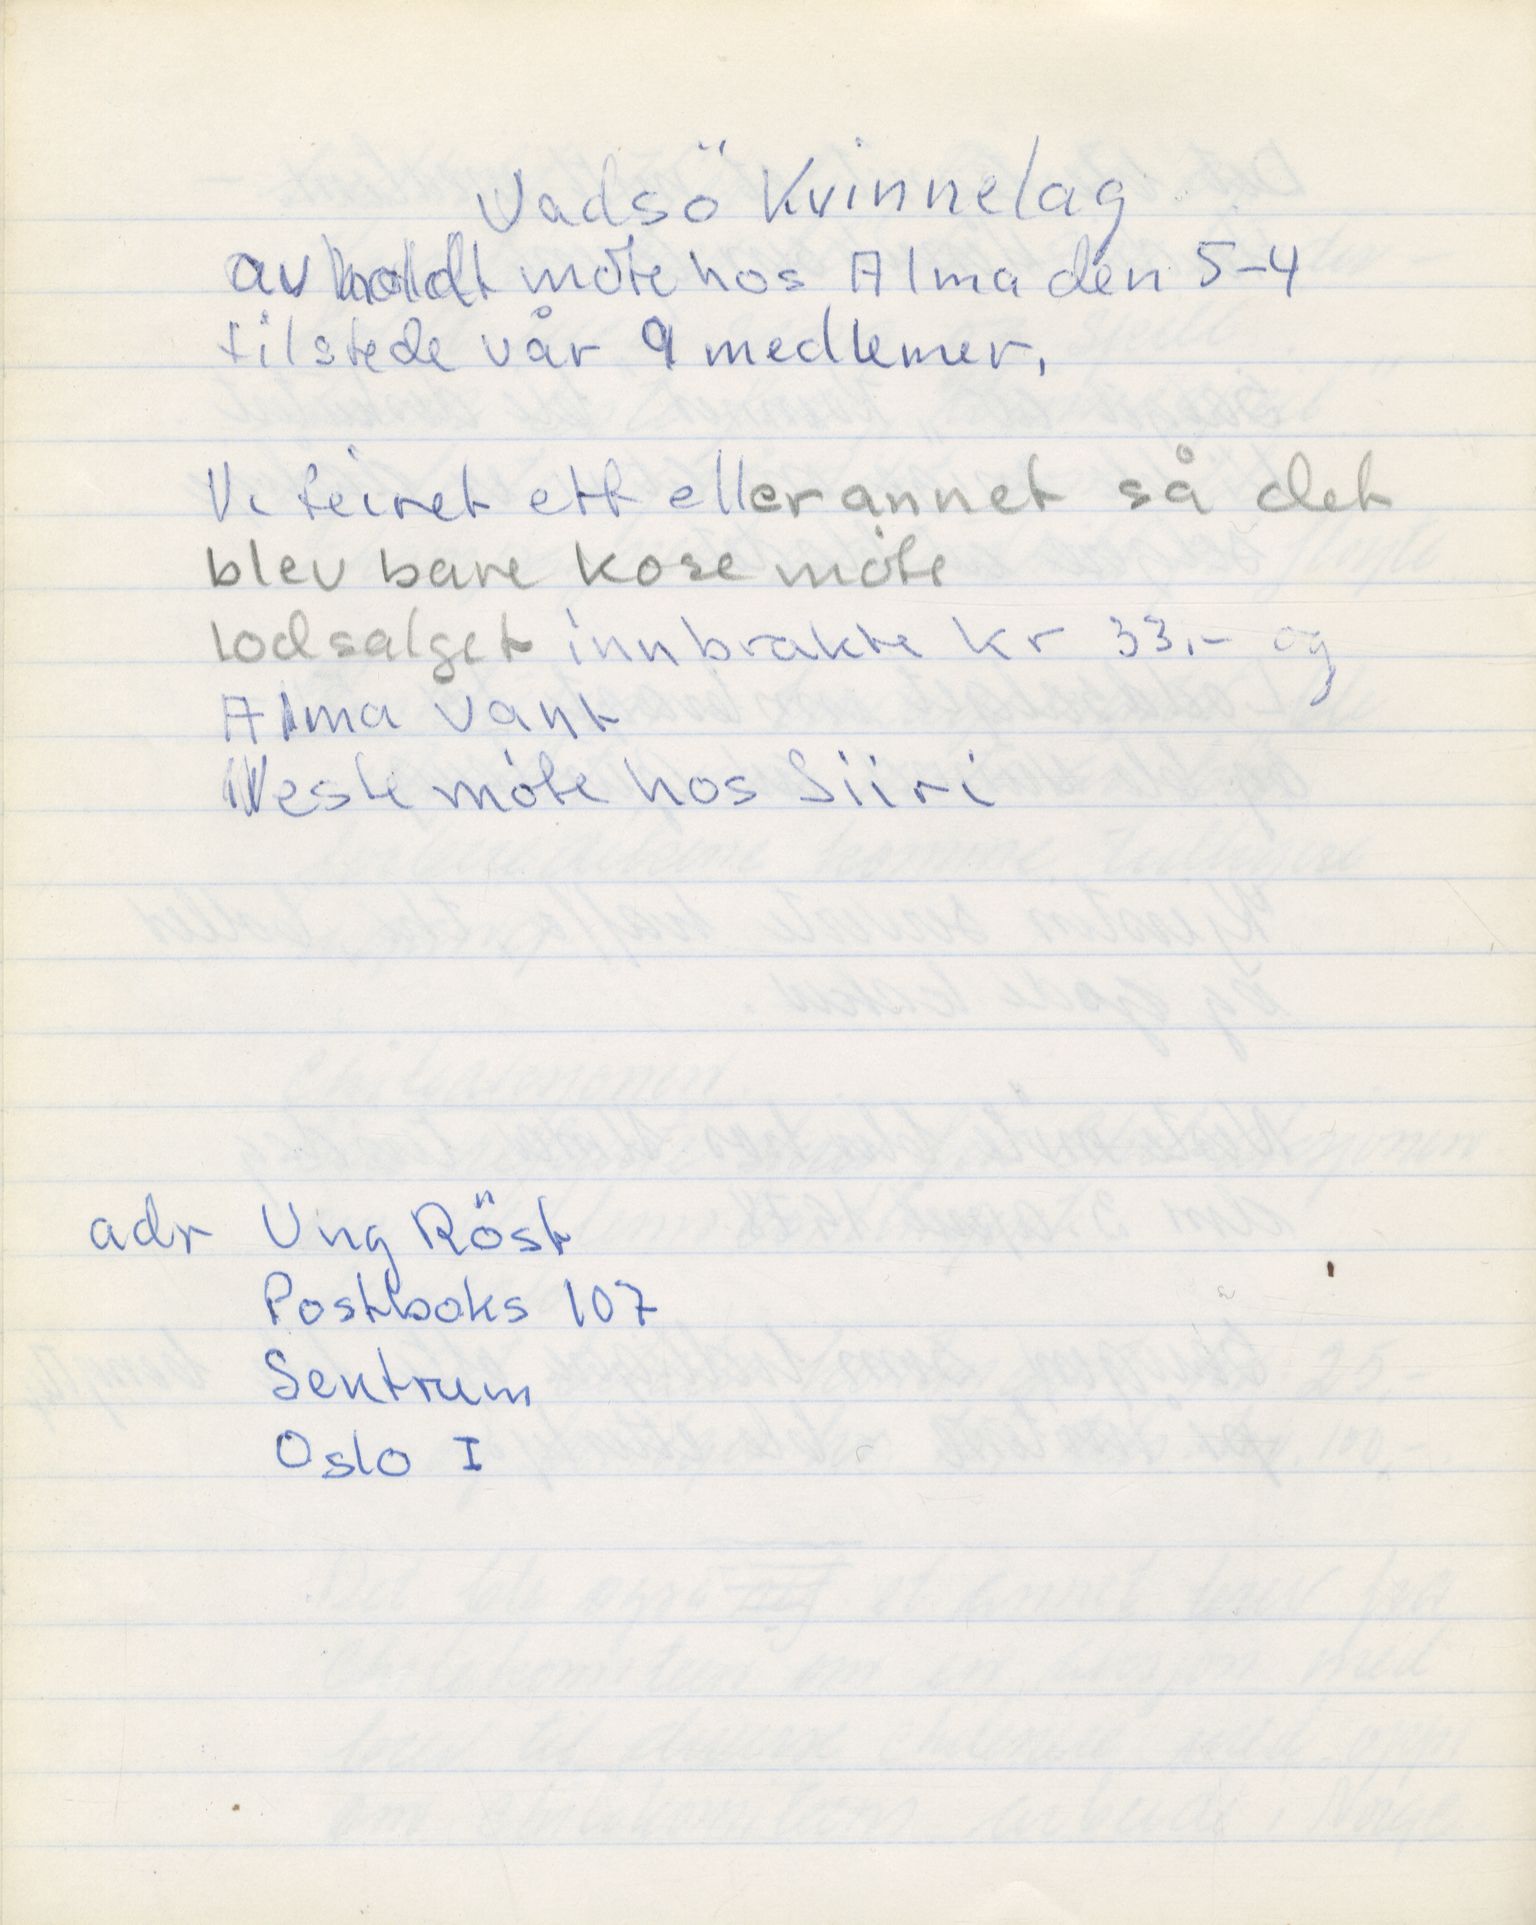 Vadsö Kvinnelag
avholdt möte hos Alma den 5-4
tilstede vår 9 medlemer,
Vi feiret ett eller annet så det
blev bare kose möte
lodsalget innbrakte kr 33,- og
Alma vant
Neste möte hos Siiri
adr Ung Röst
Postboks 107
Sentrum
Oslo I